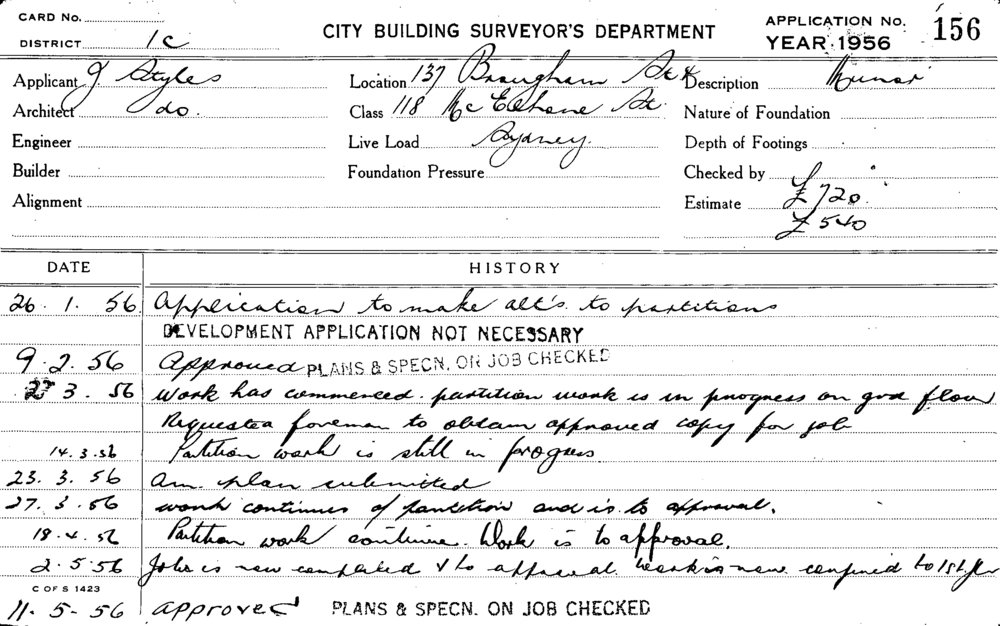 CARD No.
DISTRICT 1c
CITY BUILDING SURVEYOR'S DEPARTMENT
APPLICATION No. 156
YEAR 1956
Applicant J Styles
Location 137 Brougham St &
Description Minor
Architect do.
Class 118 McElhone St.
Nature of Foundation
Engineer
Live Load Sydney.
Depth of Footings
Builder
Foundation Pressure
Checked by
Alignment
Estimate £720
£540
DATE HISTORY
26. 1. 56 Application to make alt's. to partitions
DEVELOPMENT APPLICATION NOT NECESSARY
9. 2. 56 Approved PLANS & SPECN. ON JOB CHECKED
3. 56 work has commenced. partition work is in progress on grd floor
Requested foreman to obtain approved copy for job
14. 3. 56 Partition work is still in progress
23. 3. 56 Am. plan submitted
27. 3. 56 work continues of partition and is to approval.
18. 4. 56 Partition work continue. Work is to approval.
2. 5. 56 Job is now completed & to approval. Work is now confined to 1st flr
C OF S 1423
11. 5- 56 approved PLANS & SPECN. ON JOB CHECKED